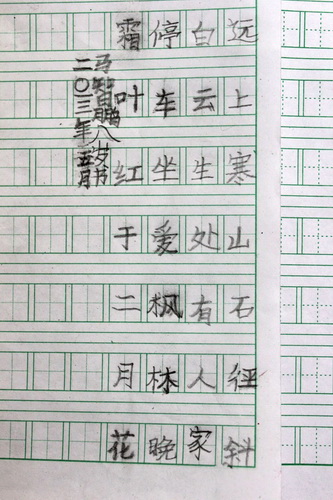 远上寒山石径斜
白云生处有人家
停车坐爱枫林晚
霜叶红于二月花
马智鹏八岁书
二〇三年五月